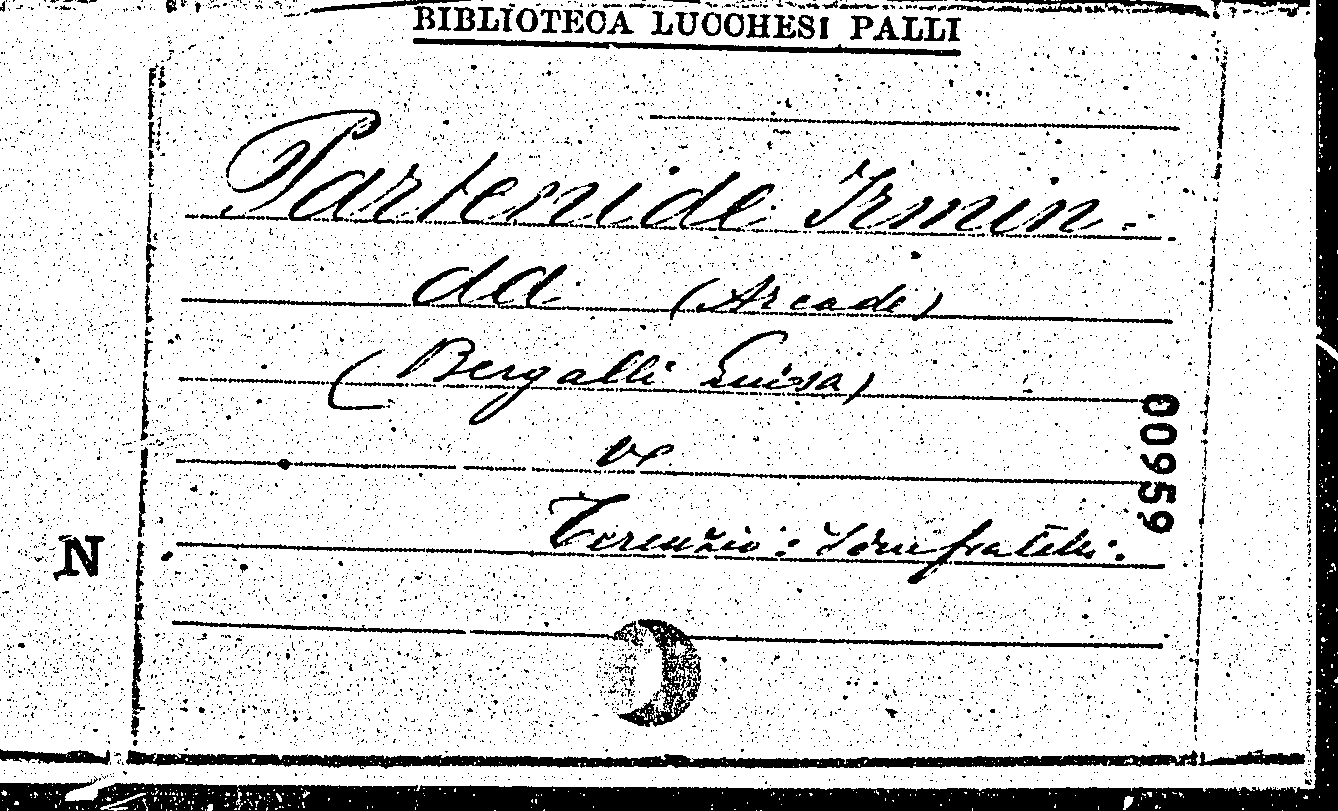 BIBLIOTECA LUCCHESI PALLI
Partenide Irmin-
da (Arcade)
(Bergalli Luisa)
v.
Terenzio: I due fratelli.
00959
N